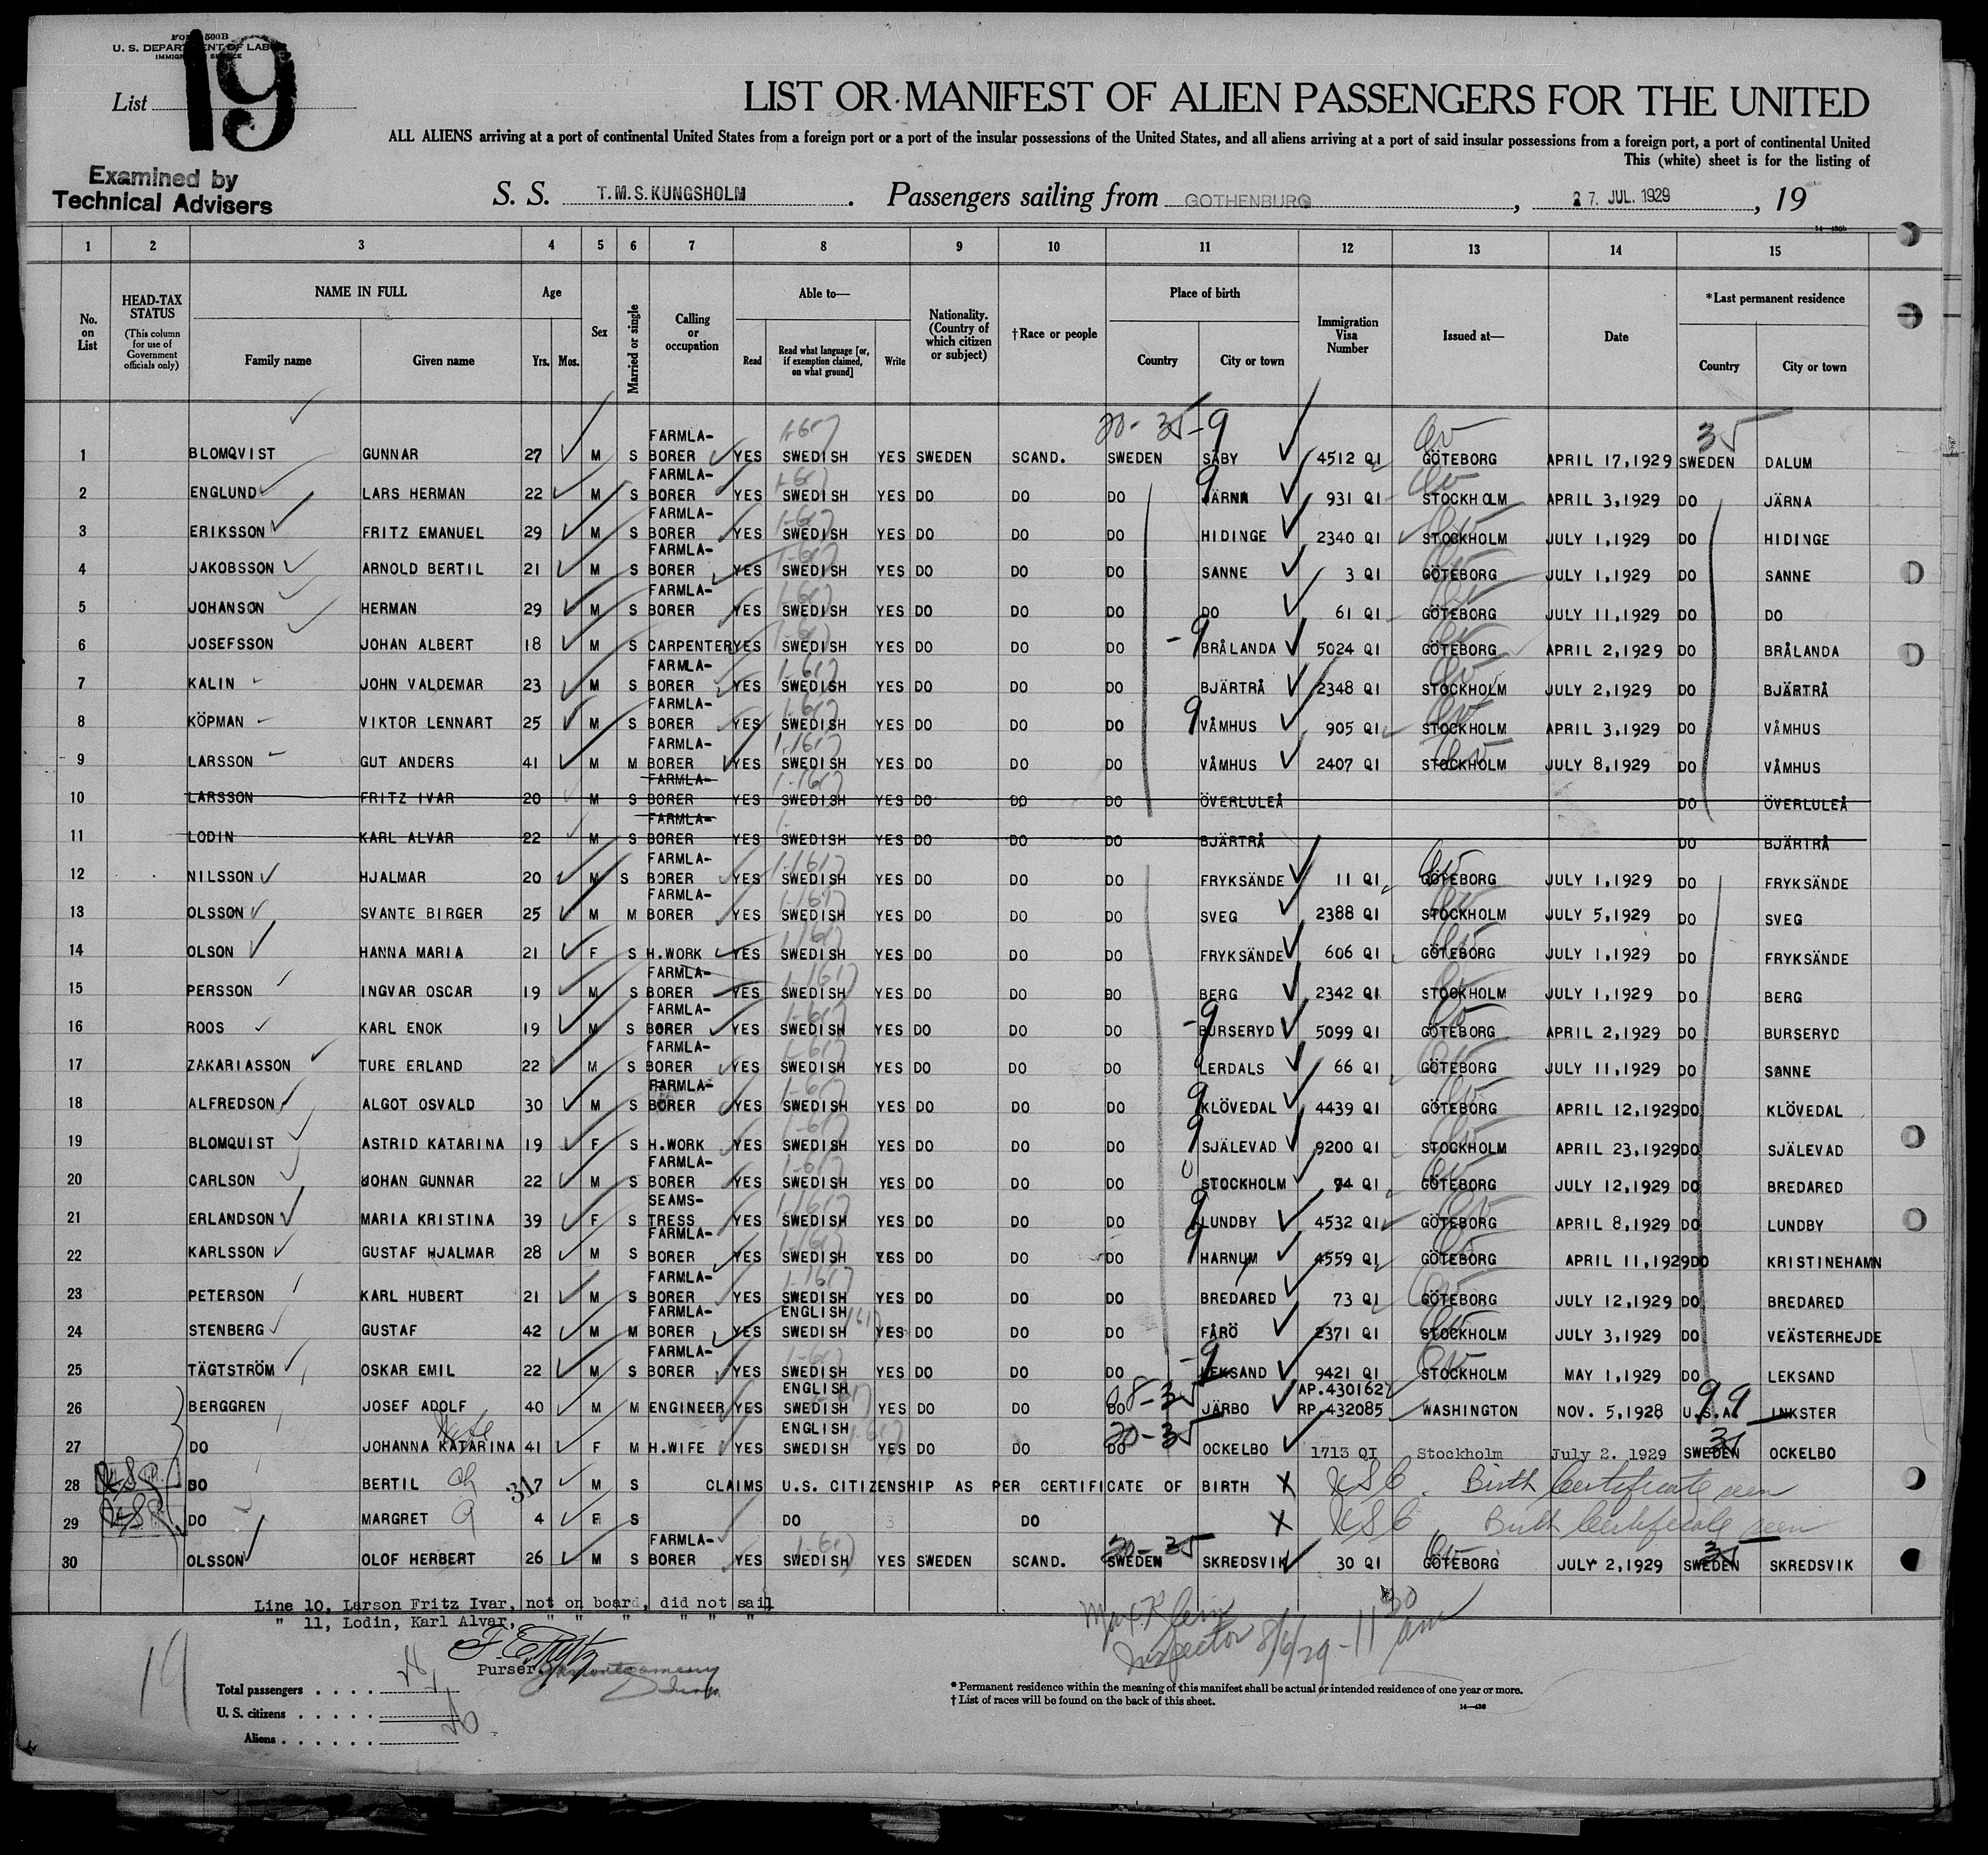 FORM 500B
U. S. DEPARTMENT OF LABOR
IMMIGRATION SERVICE
List 19
LIST OR MANIFEST OF ALIEN PASSENGERS FOR THE UNITED
ALL ALIENS arriving at a port of continental United States from a foreign port or a port of the insular possessions of the United States, and all aliens arriving at a port of said insular possessions from a foreign port, a port of continental United
This (white) sheet is for the listing of
Examined by
Technical Advisers
S. S. T.M.S.KUNGSHOLM. Passengers sailing from GOTHENBURG, 27. JUL. 1929, 19
1 2 3 4 5 6 7 8 9 10 11 12 13 14 15
No. on List
HEAD-TAX STATUS (This column for use of Government officials only)
NAME IN FULL Family name Given name
Age Yrs. Mos.
Sex
Married or single
Calling or occupation
Able to— Read Read what language [or, if exemption claimed, on what ground] Write
Nationality. (Country of which citizen or subject)
†Race or people
Place of birth Country City or town
Immigration Visa Number
Issued at—
Date
*Last permanent residence Country City or town
20-35-9 35
1 BLOMQVIST GUNNAR 27 M S FARMLA-BORER YES SWEDISH YES SWEDEN SCAND. SWEDEN SÄBY 4512 QI GÖTEBORG APRIL 17,1929 SWEDEN DALUM
2 ENGLUND LARS HERMAN 22 M S FARMLA-BORER YES SWEDISH YES DO DO DO JÄRNA 931 QI STOCKHOLM APRIL 3,1929 DO JÄRNA
3 ERIKSSON FRITZ EMANUEL 29 M S FARMLA-BORER YES SWEDISH YES DO DO DO HIDINGE 2340 QI STOCKHOLM JULY 1,1929 DO HIDINGE
4 JAKOBSSON ARNOLD BERTIL 21 M S FARMLA-BORER YES SWEDISH YES DO DO DO SANNE 3 QI GÖTEBORG JULY 1,1929 DO SANNE
5 JOHANSON HERMAN 29 M S FARMLA-BORER YES SWEDISH YES DO DO DO DO 61 QI GÖTEBORG JULY 11,1929 DO DO
6 JOSEFSSON JOHAN ALBERT 18 M S CARPENTER YES SWEDISH YES DO DO DO BRÅLANDA 5024 QI GÖTEBORG APRIL 2,1929 DO BRÅLANDA
7 KALIN JOHN VALDEMAR 23 M S FARMLA-BORER YES SWEDISH YES DO DO DO BJÄRTRÅ 2348 QI STOCKHOLM JULY 2,1929 DO BJÄRTRÅ
8 KÖPMAN VIKTOR LENNART 25 M S FARMLA-BORER YES SWEDISH YES DO DO DO VÅMHUS 905 QI STOCKHOLM APRIL 3,1929 DO VÅMHUS
9 LARSSON GUT ANDERS 41 M M FARMLA-BORER YES SWEDISH YES DO DO DO VÅMHUS 2407 QI STOCKHOLM JULY 8,1929 DO VÅMHUS
10 LARSSON FRITZ IVAR 20 M S FARMLA-BORER YES SWEDISH YES DO DO DO ÖVERLULEÅ DO ÖVERLULEÅ
11 LODIN KARL ALVAR 22 M S FARMLA-BORER YES SWEDISH YES DO DO DO BJÄRTRÅ DO BJÄRTRÅ
12 NILSSON HJALMAR 20 M S FARMLA-BORER YES SWEDISH YES DO DO DO FRYKSÄNDE 11 QI GÖTEBORG JULY 1,1929 DO FRYKSÄNDE
13 OLSSON SVANTE BIRGER 25 M M FARMLA-BORER YES SWEDISH YES DO DO DO SVEG 2388 QI STOCKHOLM JULY 5,1929 DO SVEG
14 OLSON HANNA MARIA 21 F S H.WORK YES SWEDISH YES DO DO DO FRYKSÄNDE 606 QI GÖTEBORG JULY 1,1929 DO FRYKSÄNDE
15 PERSSON INGVAR OSCAR 19 M S FARMLA-BORER YES SWEDISH YES DO DO DO BERG 2342 QI STOCKHOLM JULY 1,1929 DO BERG
16 ROOS KARL ENOK 19 M S FARMLA-BORER YES SWEDISH YES DO DO DO BURSERYD 5099 QI GÖTEBORG APRIL 2,1929 DO BURSERYD
17 ZAKARIASSON TURE ERLAND 22 M S FARMLA-BORER YES SWEDISH YES DO DO DO LERDALS 66 QI GÖTEBORG JULY 11,1929 DO SANNE
18 ALFREDSON ALGOT OSVALD 30 M S FARMLA-BORER YES SWEDISH YES DO DO DO KLÖVEDAL 4439 QI GÖTEBORG APRIL 12,1929 DO KLÖVEDAL
19 BLOMQUIST ASTRID KATARINA 19 F S H.WORK YES SWEDISH YES DO DO DO SJÄLEVAD 9200 QI STOCKHOLM APRIL 23,1929 DO SJÄLEVAD
20 CARLSON JOHAN GUNNAR 22 M S FARMLA-BORER YES SWEDISH YES DO DO DO STOCKHOLM 74 QI GÖTEBORG JULY 12,1929 DO BREDARED
21 ERLANDSON MARIA KRISTINA 39 F S SEAMS-TRESS YES SWEDISH YES DO DO DO LUNDBY 4532 QI GÖTEBORG APRIL 8,1929 DO LUNDBY
22 KARLSSON GUSTAF HJALMAR 28 M S FARMLA-BORER YES SWEDISH YES DO DO DO HARNUM 4559 QI GÖTEBORG APRIL 11,1929 DO KRISTINEHAMN
23 PETERSON KARL HUBERT 21 M S FARMLA-BORER YES SWEDISH YES DO DO DO BREDARED 73 QI GÖTEBORG JULY 12,1929 DO BREDARED
24 STENBERG GUSTAF 42 M M FARMLA-BORER YES ENGLISH SWEDISH YES DO DO DO FÅRÖ 2371 QI STOCKHOLM JULY 3,1929 DO VEÄSTERHEJDE
25 TÄGTSTRÖM OSKAR EMIL 22 M S FARMLA-BORER YES SWEDISH YES DO DO DO LEKSAND 9421 QI STOCKHOLM MAY 1,1929 DO LEKSAND
26 BERGGREN JOSEF ADOLF 40 M M ENGINEER YES ENGLISH SWEDISH YES DO DO DO JÄRBO AP.430162 RP.432085 WASHINGTON NOV. 5,1928 U.S.A. 99 INKSTER
27 DO JOHANNA KATARINA 41 F M H.WIFE YES ENGLISH SWEDISH YES DO DO DO 20-35 OCKELBO 1713 QI Stockholm July 2. 1929 SWEDEN OCKELBO
28 DO BERTIL 7 M S CLAIMS U.S. CITIZENSHIP AS PER CERTIFICATE OF BIRTH X USC. Birth Certificate seen
29 DO MARGRET 4 F S DO DO X USC. Birth Certificate seen
30 OLSSON OLOF HERBERT 26 M S FARMLA-BORER YES SWEDISH YES SWEDEN SCAND. SWEDEN 20-35 SKREDSVIK 30 QI GÖTEBORG JULY 2,1929 SWEDEN 35 SKREDSVIK
Line 10, Larson Fritz Ivar, not on board, did not sail
" 11, Lodin, Karl Alvar, " " " " " "
Purser
Max Klein
Inspector 8/6/29 - 11 30 am
19
Total passengers . . . .
U. S. citizens . . . . .
Aliens . . . . . .
*Permanent residence within the meaning of this manifest shall be actual or intended residence of one year or more.
†List of races will be found on the back of this sheet.